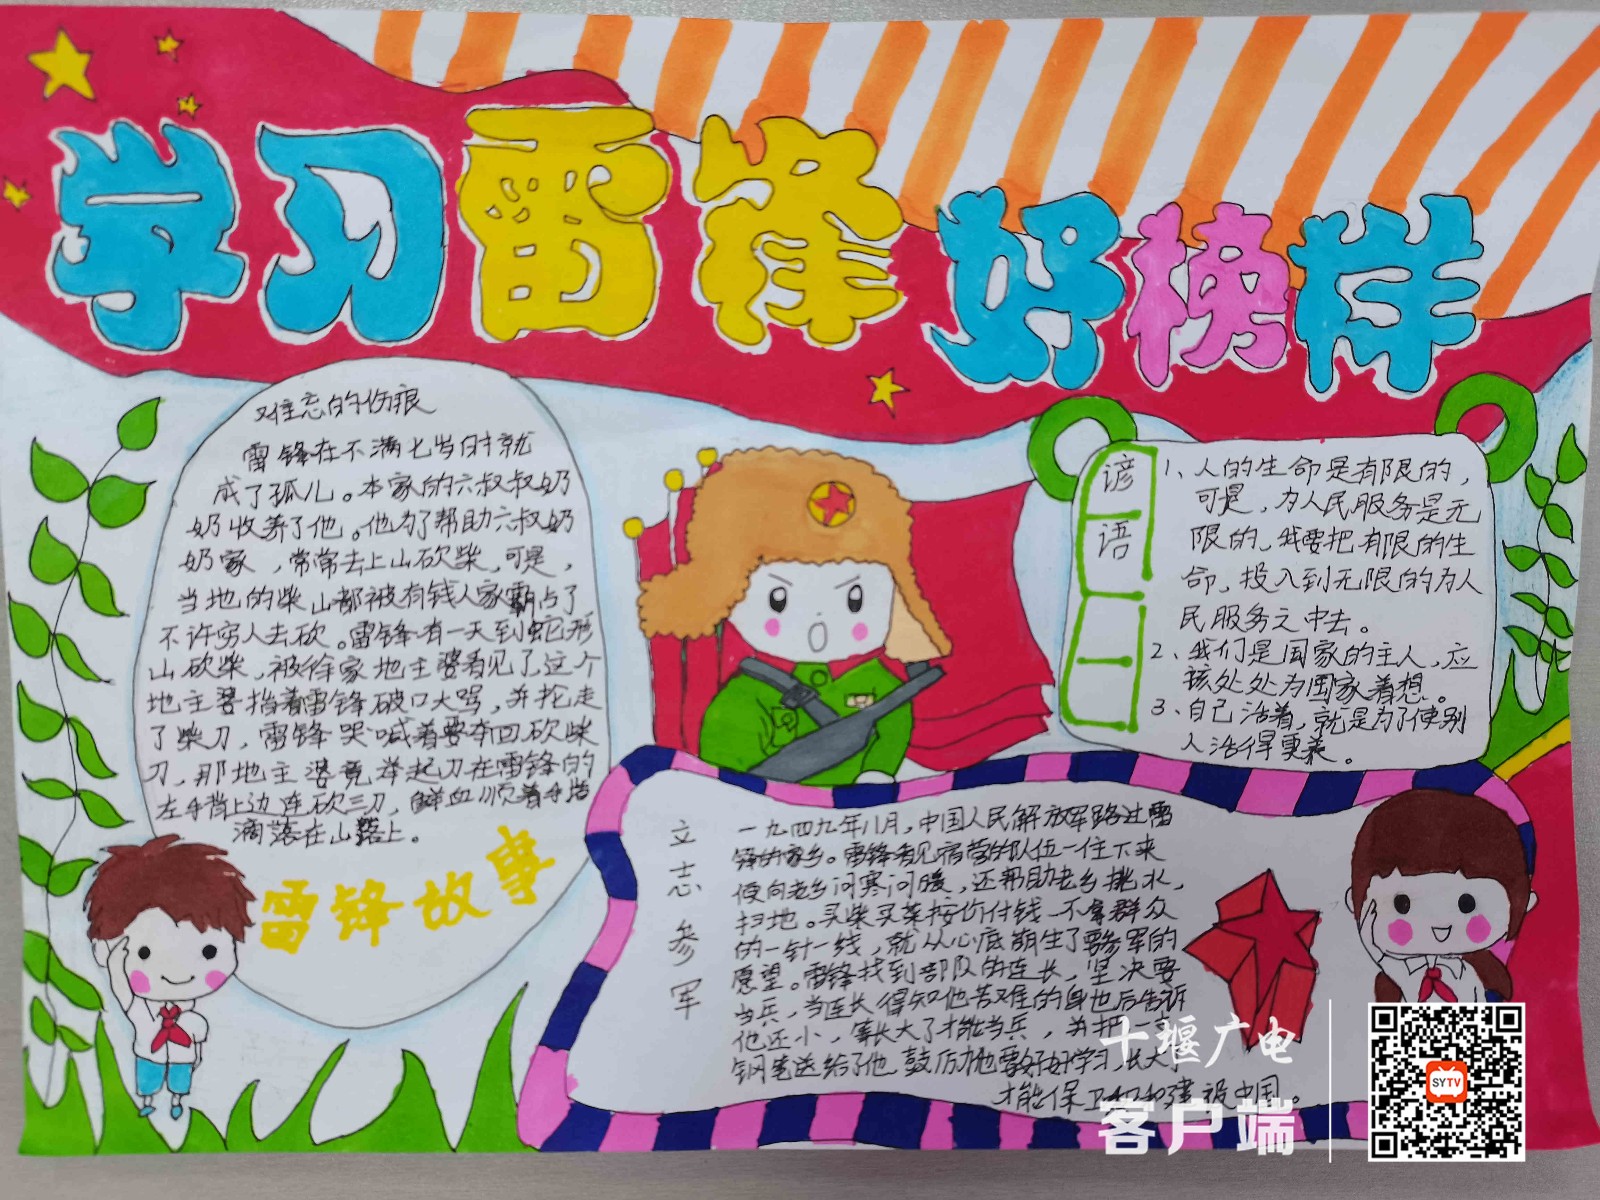 学习雷锋好榜样
难忘的伤痕
雷锋在不满七岁时就
成了孤儿。本家的六叔叔奶
奶收养了他。他为了帮助六叔奶
奶家，常常去上山砍柴，可是，
当地的柴山都被有钱人家霸占了
不许穷人去砍。雷锋有一天到蛇形
山砍柴，被徐家地主婆看见了，这个
地主婆指着雷锋破口大骂，并抡走
了柴刀，雷锋哭喊着要夺回砍柴
刀，那地主婆竟举起刀在雷锋的
左手背上边连砍三刀，鲜血顺着手指
滴落在山路上。
雷锋故事
谚语
1、人的生命是有限的，
可是，为人民服务是无
限的，我要把有限的生
命，投入到无限的为人
民服务之中去。
2、我们是国家的主人，应
该处处为国家着想。
3、自己活着，就是为了使别
人活得更美。
立志参军
一九四九年八月，中国人民解放军路过雷
锋的家乡。雷锋看见宿营的队伍一住下来
便向老乡问寒问暖，还帮助老乡挑水，
扫地。买柴买菜按价付钱，不拿群众
的一针一线，就从心底萌生了要参军的
愿望。雷锋找到部队的连长，坚决要
当兵，当连长得知他苦难的身世后告诉
他还小，等长大了才能当兵，并把一支
钢笔送给了他，鼓励他要好好学习，长大了
才能保卫和建设中国。
十堰广电
客户端
SYTV